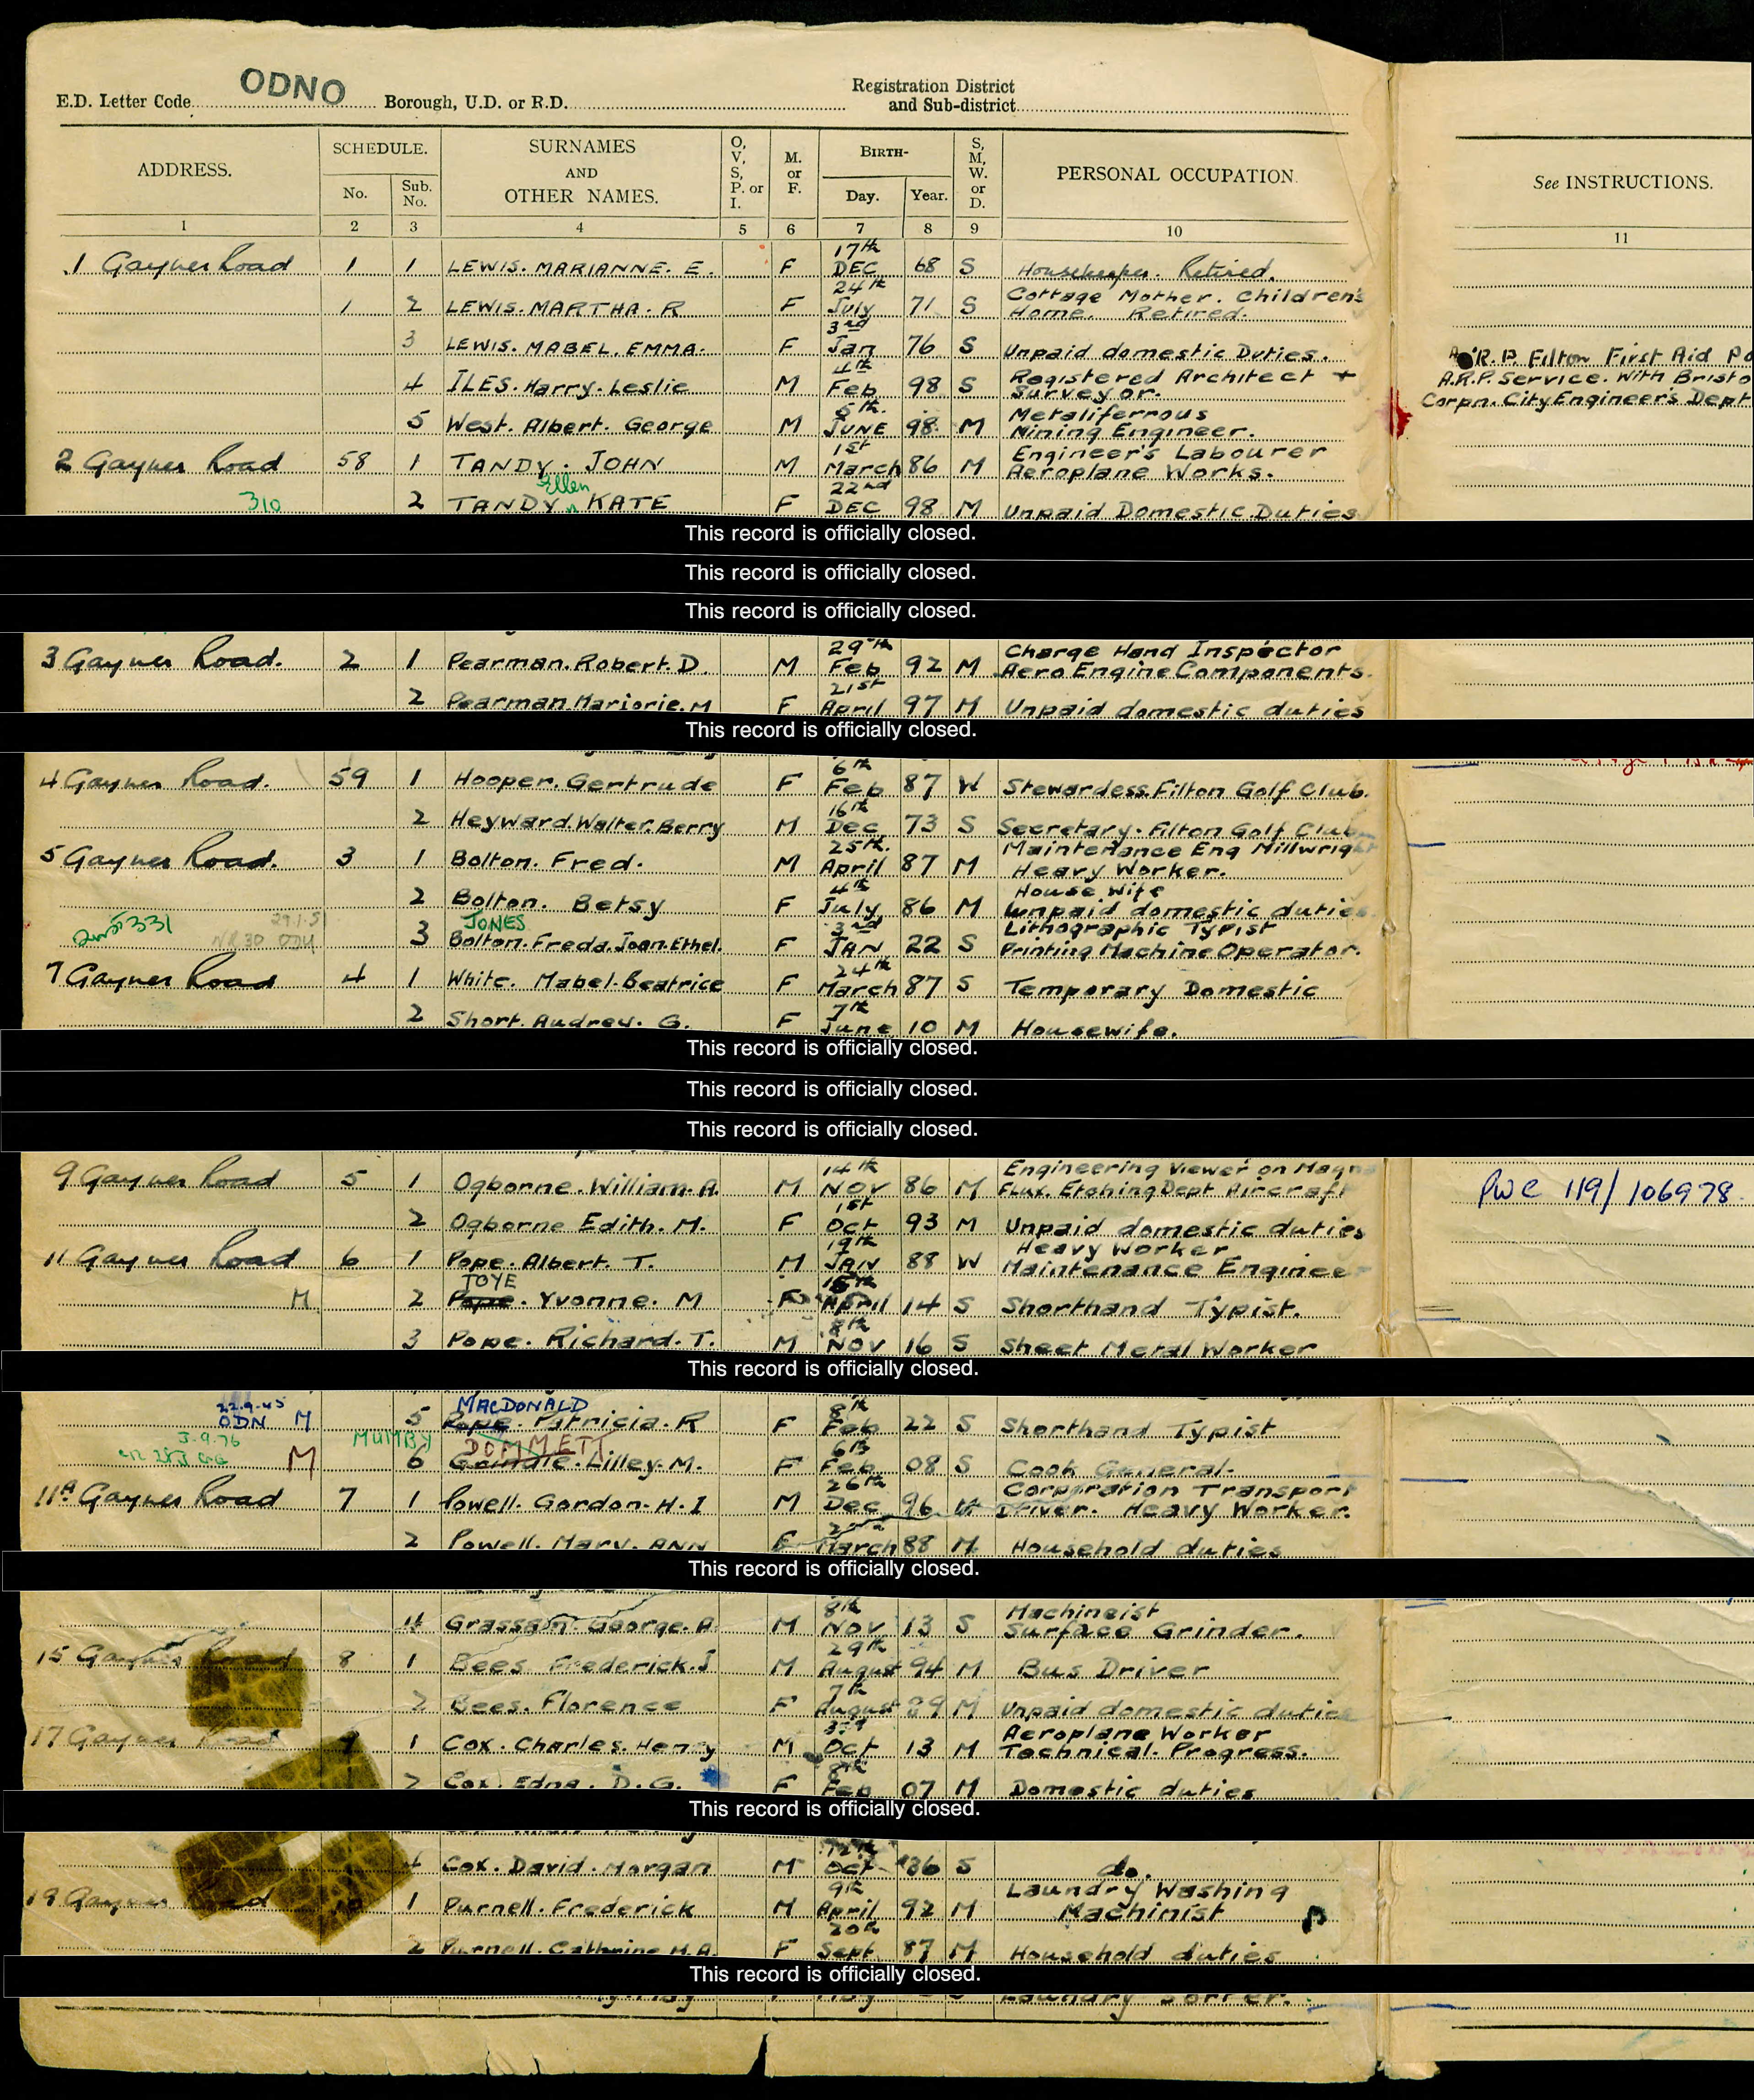 E.D. Letter Code ODNO Borough, U.D. or R.D. Registration District and Sub-district
ADDRESS. SCHEDULE. No. Sub. No. SURNAMES AND OTHER NAMES. O, V, S, P. or I. M. or F. BIRTH- Day. Year. S, M, W. or D. PERSONAL OCCUPATION. See INSTRUCTIONS.
1 2 3 4 5 6 7 8 9 10 11
1 Gayner Road 1 1 LEWIS. MARIANNE. E. F 17th DEC 68 S Housekeeper. Retired.
1 2 LEWIS. MARTHA. R F 24th July 71 S Cottage Mother. Children's Home. Retired.
3 LEWIS. MABEL. EMMA. F 3rd Jan 76 S Unpaid domestic Duties. A.R.P. Filton First Aid Po
4 ILES. Harry. Leslie M 4th Feb 98 S Registered Architect + Surveyor. A.R.P. Service. With Bristo
Corpn. City Engineer's Dept
5 West. Albert. George M 5th JUNE 98 M Metaliferrous Mining Engineer.
2 Gayner Road 58 1 TANDY. JOHN M 1st March 86 M Engineer's Labourer Aeroplane Works.
310 2 TANDY Ellen KATE F 22nd DEC 98 M Unpaid Domestic Duties
This record is officially closed.
This record is officially closed.
This record is officially closed.
3 Gayner Road. 2 1 Pearman. Robert. D. M 29th Feb 92 M Charge Hand Inspector Aero Engine Components.
2 Pearman. Marjorie. M F 21st April 97 M Unpaid domestic duties
This record is officially closed.
4 Gayner Road. 59 1 Hooper. Gertrude F 6th Feb 87 W Stewardess. Filton Golf Club.
2 Heyward. Walter. Berry M 16th Dec 73 S Secretary. Filton Golf Club
5 Gayner Road. 3 1 Bolton. Fred. M 25th. April 87 M Maintenance Eng Millwright Heavy Worker.
2 Bolton. Betsy F 4th July 86 M House Wife Unpaid domestic duties
331 29.1.51 NR30 ODU 3 JONES Bolton. Freda. Joan. Ethel. F 3rd JAN 22 S Lithographic Typist Printing Machine Operator.
7 Gayner Road 4 1 White. Mabel. Beatrice F 24th March 87 S Temporary Domestic
2 Short. Audrey. G. F 7th June 10 M Housewife.
This record is officially closed.
This record is officially closed.
This record is officially closed.
9 Gayner Road 5 1 Ogborne. William. A. M 14th NOV 86 M Engineering Viewer on Magna Flux. Etching Dept Aircraft PWC 119/106978
2 Ogborne Edith. M. F 1st Oct 93 M Unpaid domestic duties
11 Gayner Road 6 1 Pope. Albert. T. M 19th JAN 88 W Heavy Worker Maintenance Engineer
M 2 TOYE Pope. Yvonne. M F 15th April 14 S Shorthand Typist.
3 Pope. Richard. T. M 8th NOV 16 S Sheet Metal Worker
This record is officially closed.
22.9.45 ODN M 5 MACDONALD Pope. Patricia. R F 8th Feb 22 S Shorthand Typist
3.9.76 M MUMBY 6 DOMMETT Grindle. Lilley. M. F 6th Feb 08 S Cook General.
11A Gayner Road 7 1 Powell. Gordon. H. I M 26th Dec 96 M Corporation Transport Driver. Heavy Worker.
2 Powell. Mary. ANN F March 88 M Household duties
This record is officially closed.
4 Grassam. George. A. M 8th Nov 13 S Machineist Surface Grinder.
15 Gayner Road 8 1 Bees Frederick. J M 29th August 94 M Bus Driver
2 Bees. Florence F 7th August 89 M Unpaid domestic duties
17 Gayner Road 9 1 Cox. Charles. Henry M 3rd Oct 13 M Aeroplane Worker Technical. Progress.
2 Cox. Edna. D. G. F 8th Feb 07 M Domestic duties
This record is officially closed.
4 Cox. David. Morgan M 12th Oct 36 S do.
19 Gayner Road 10 1 Purnell. Frederick M 9th April 92 M Laundry Washing Machinist
2 Purnell. Cathrine M. A. F 20th Sept 87 M Household duties
This record is officially closed.
Laundry Sorter.